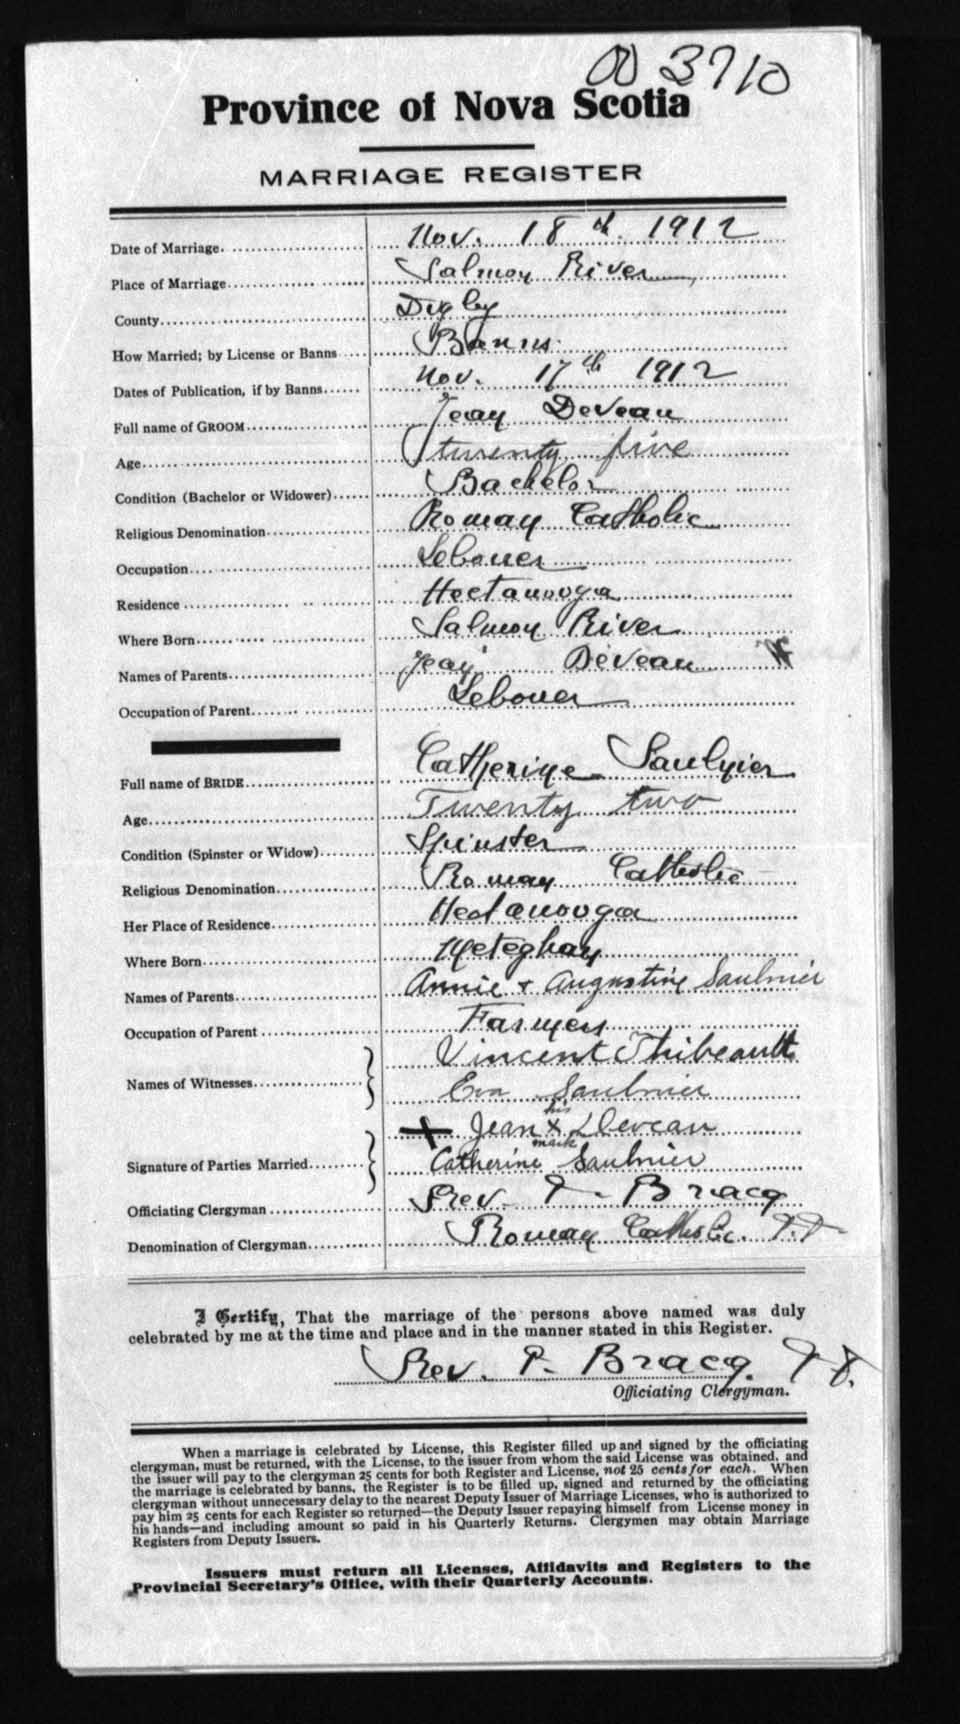 003710
Province of Nova Scotia
MARRIAGE REGISTER
Date of Marriage Nov. 18th. 1912
Place of Marriage Salmon River
County Digby
How Married; by License or Banns Banns.
Dates of Publication, if by Banns Nov. 17th 1912
Full name of GROOM Jean Deveau
Age twenty five
Condition (Bachelor or Widower) Bachelor
Religious Denomination Roman Catholic
Occupation Lebouer
Residence Hectanooga
Where Born Salmon River
Names of Parents Jean Deveau
Occupation of Parent Lebouer
Full name of BRIDE Catherine Saulnier
Age Twenty two
Condition (Spinster or Widow) Spinster
Religious Denomination Roman Catholic
Her Place of Residence Hectanooga
Where Born Meteghan
Names of Parents Annie + Augustine Saulnier
Occupation of Parent Farmers
Names of Witnesses Vincent Thibeault
Eva Saulnier
Signature of Parties Married X Jean his X mark Deveau
Catherine Saulnier
Officiating Clergyman Rev. P. Bracq
Denomination of Clergyman Roman Catholic.
I Certify, That the marriage of the persons above named was duly
celebrated by me at the time and place and in the manner stated in this Register.
Rev. P. Bracq.
Officiating Clergyman.
When a marriage is celebrated by License, this Register filled up and signed by the officiating
clergyman, must be returned, with the License, to the issuer from whom the said License was obtained, and
the issuer will pay to the clergyman 25 cents for both Register and License, not 25 cents for each. When
the marriage is celebrated by banns, the Register is to be filled up, signed and returned by the officiating
clergyman without unnecessary delay to the nearest Deputy Issuer of Marriage Licenses, who is authorized to
pay him 25 cents for each Register so returned—the Deputy Issuer repaying himself from License money in
his hands—and including amount so paid in his Quarterly Returns. Clergymen may obtain Marriage
Registers from Deputy Issuers.
Issuers must return all Licenses, Affidavits and Registers to the
Provincial Secretary's Office, with their Quarterly Accounts.